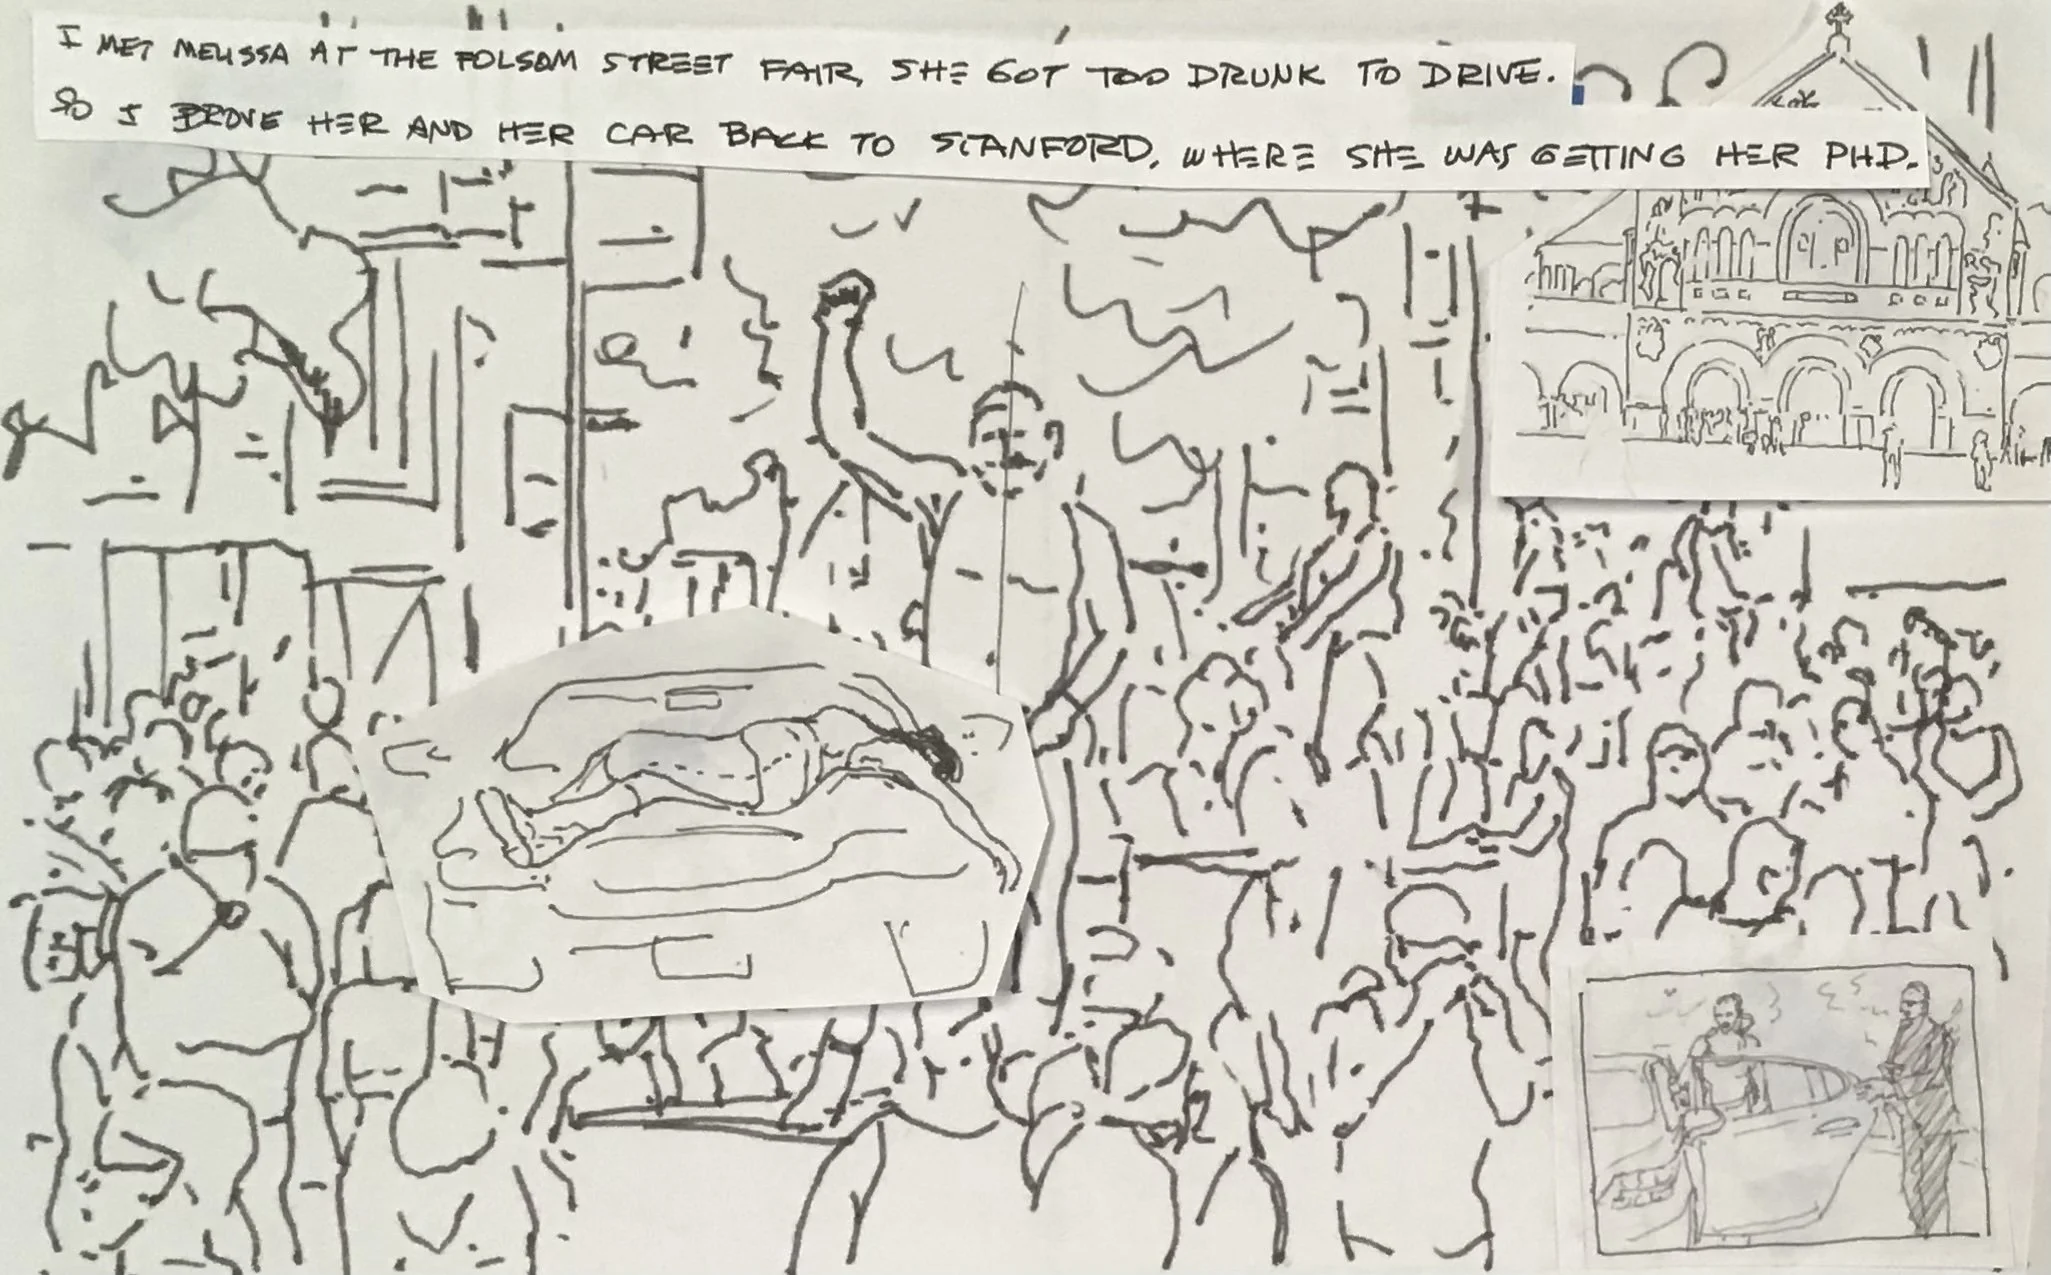 I MET MELISSA AT THE FOLSOM STREET FAIR, SHE GOT TOO DRUNK TO DRIVE.
SO I DROVE HER AND HER CAR BACK TO STANFORD, WHERE SHE WAS GETTING HER PHD.